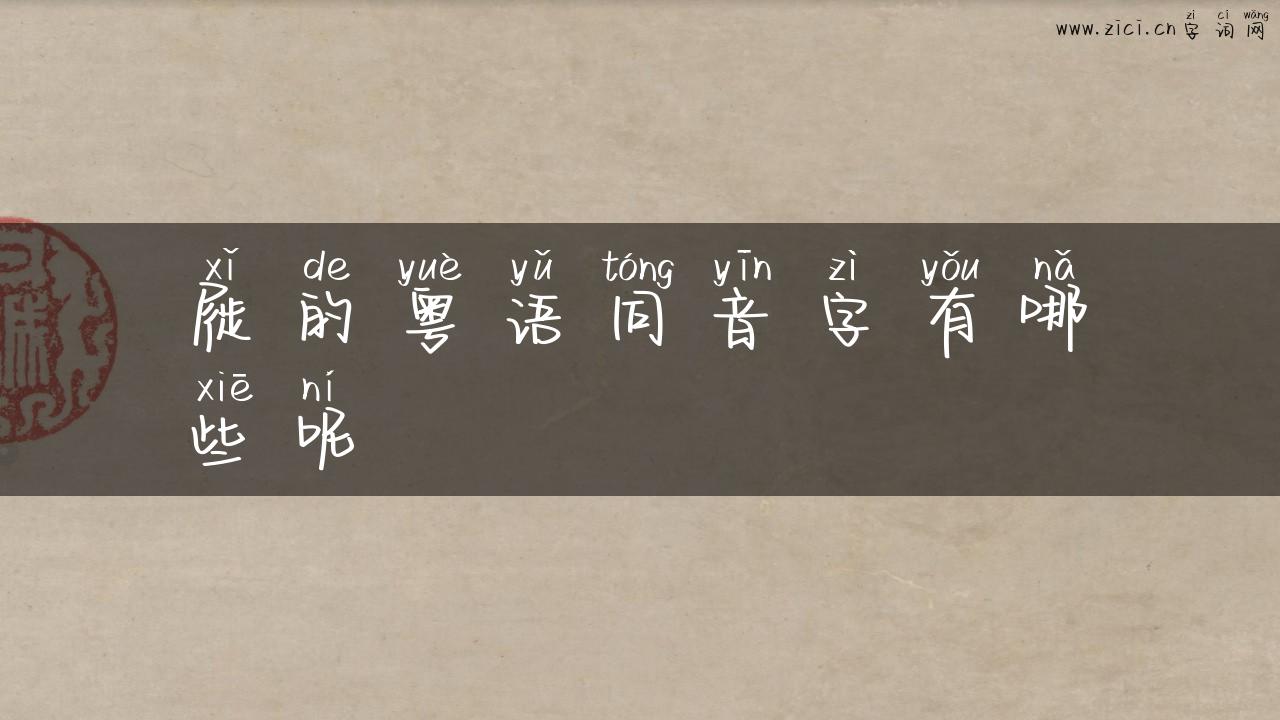 zì cí wǎng
www.zici.cn 字词网
xǐ de yuè yǔ tóng yīn zì yǒu nǎ
屣的粤语同音字有哪
xiē ní
些呢